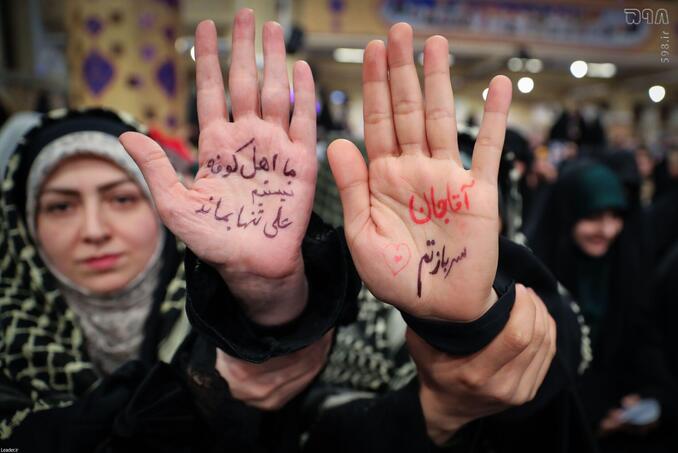 ما اهل کوفه
نیستیم
علی تنها بماند
آقاجان
سربازتم
۵۹۸
598.ir
Leader.ir